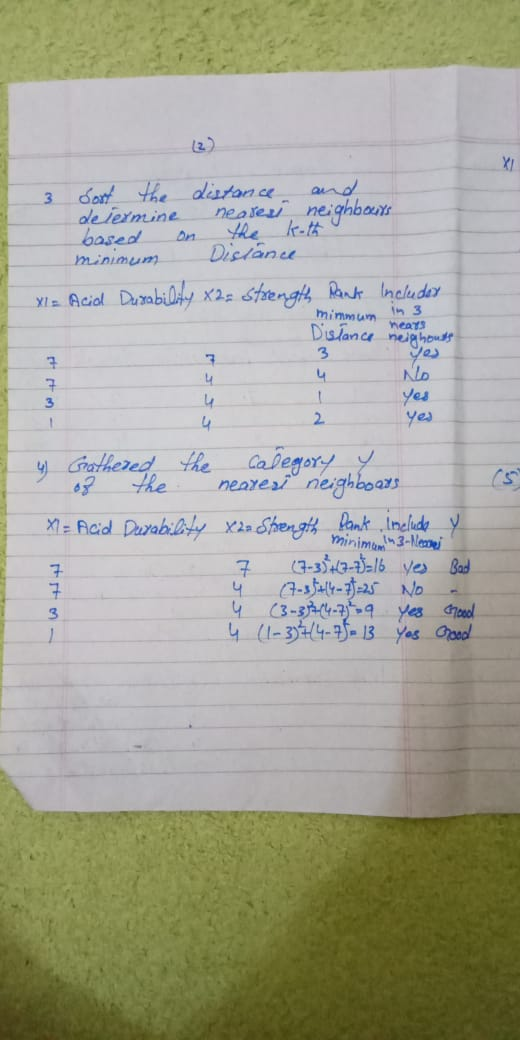 (2)
X1
3 Sort the distance and
determine nearest neighbours
based on the k-th
minimum Distance
X1= Acid Durability X2= Strength Rank Includer
minmum in 3
Distance nears
neighours
7 7 3 Yes
7 4 4 No
3 4 1 Yes
1 4 2 Yes
4) Grathered the Category y
of the nearest neighboars
(5
X1= Acid Durability X2= Strength Rank include Y
minimum in 3-
7 7 (7-3)²+(7-7)²=16 Yes Bad
7 4 (7-3)²+(4-7)²=25 No -
3 4 (3-3)²+(4-7)²=9 Yes Good
1 4 (1-3)²+(4-7)²=13 Yes Good